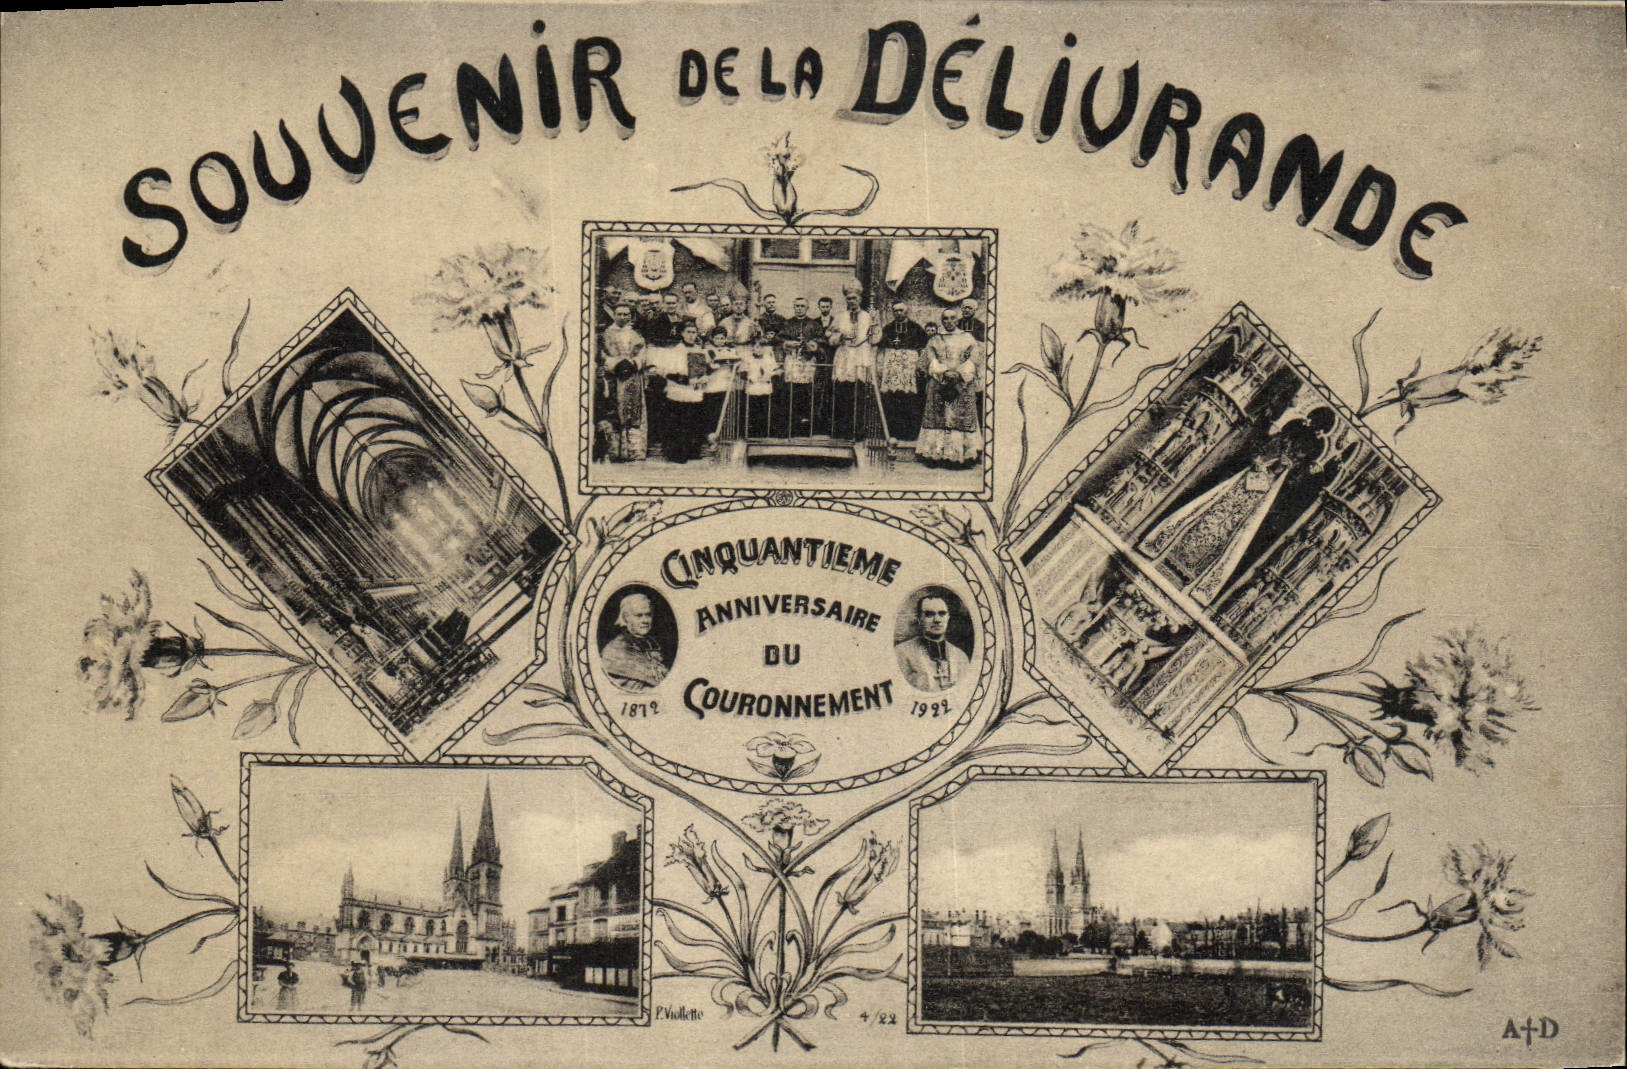 SOUVENIR DE LA DÉLIVRANDE
CINQUANTIEME
ANNIVERSAIRE
DU
COURONNEMENT
1872
1922
P. Viollette
4/22
A†D